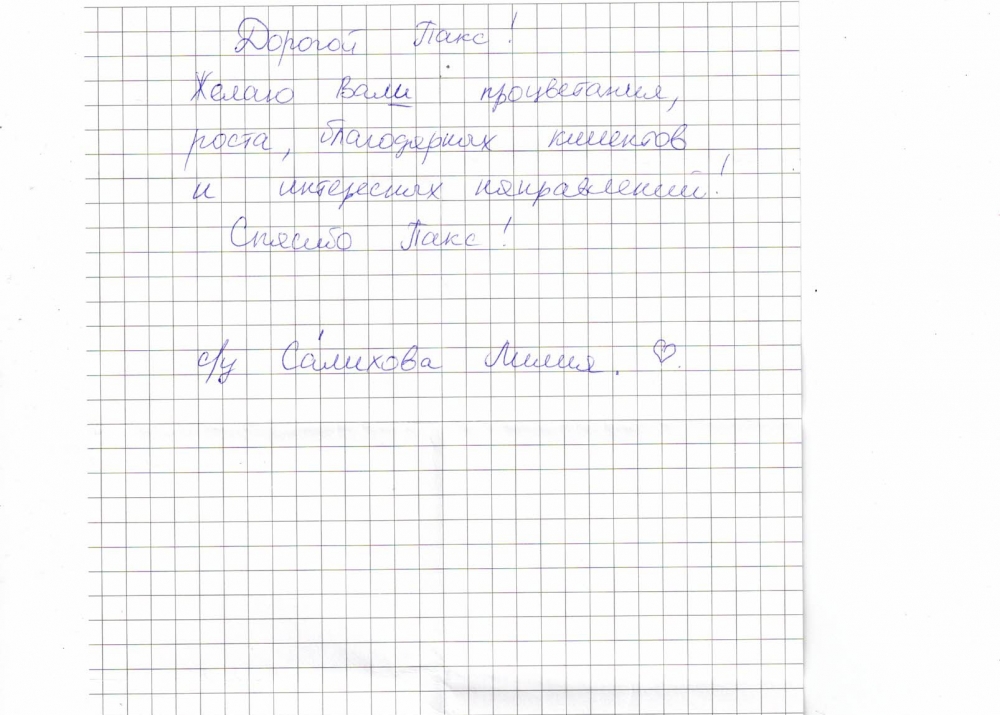 Дорогой Пакс!
Желаю Вам процветания,
роста, благодарных клиентов
и интересных направлений!
Спасибо Пакс!
с/у Салихова Лилия. ♡